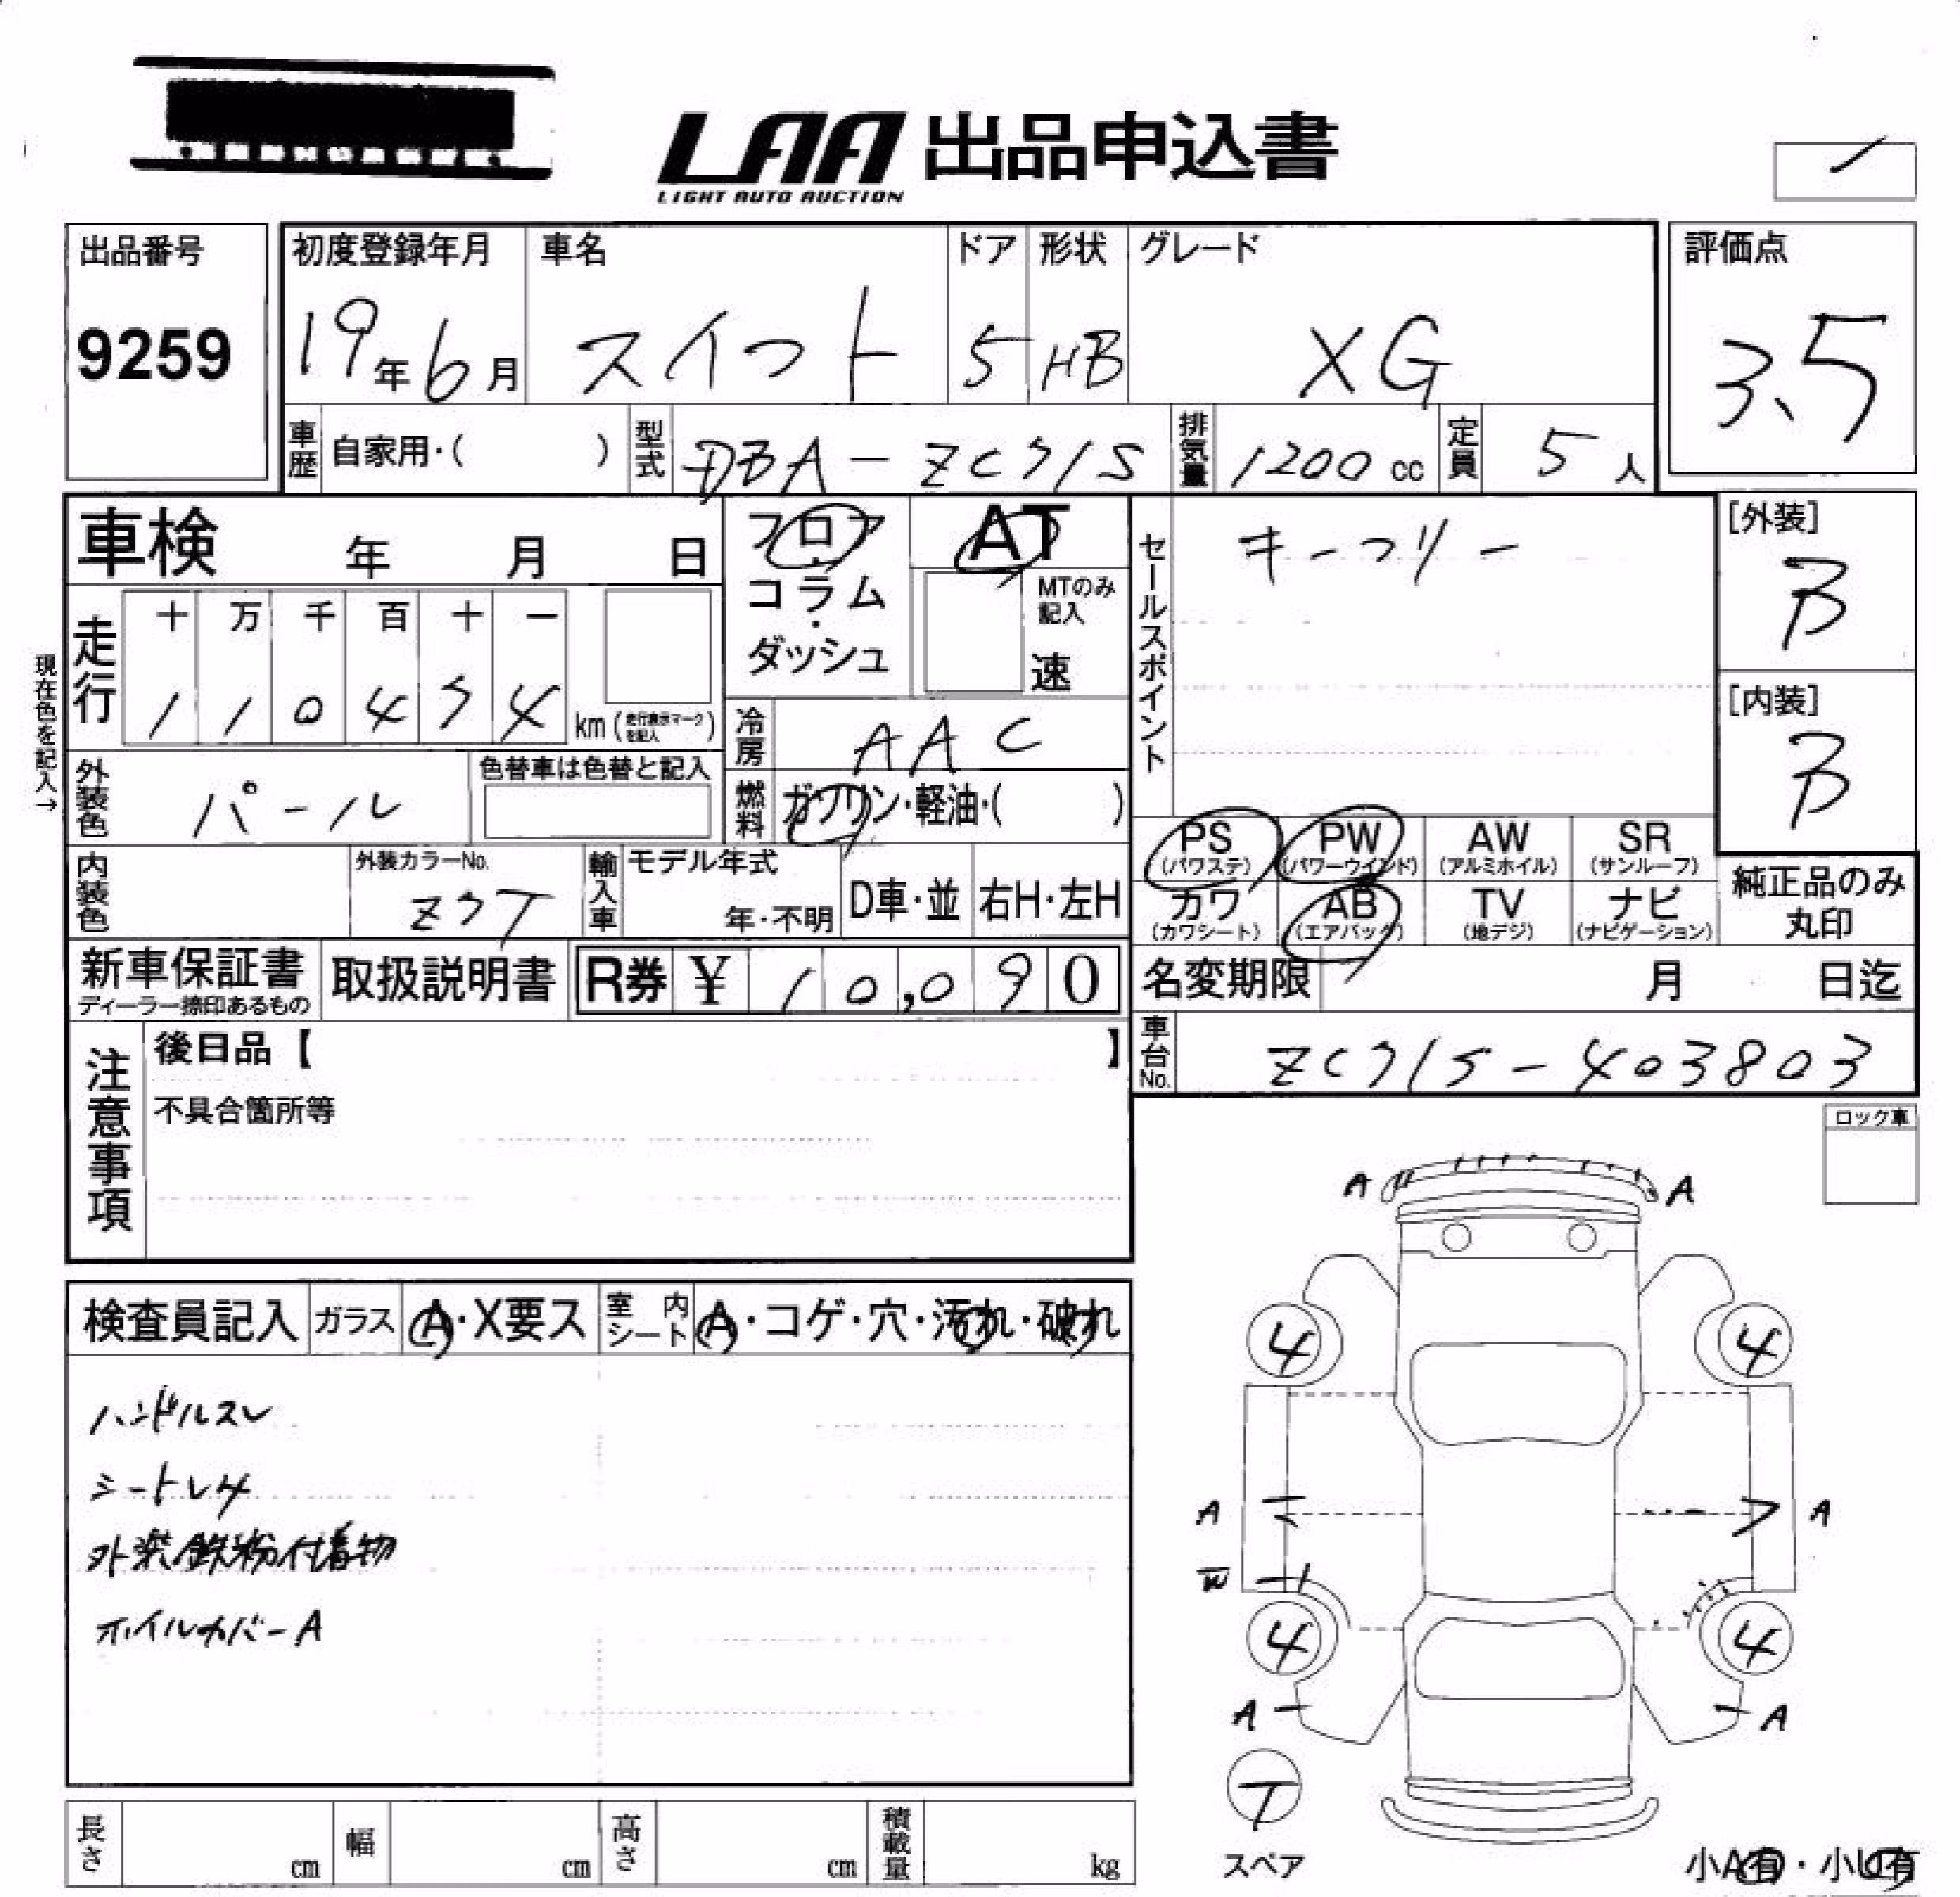 LAA 出品申込書
LIGHT AUTO AUCTION
出品番号
9259
初度登録年月
19年6月
車名
スイフト
ドア
5
形状
HB
グレード
XG
評価点
3.5
車歴 自家用・( )
型式 DBA-ZC71S
排気量 1200cc
定員 5人
車検 年 月 日
フロア・コラム・ダッシュ
AT
MTのみ記入
速
セールスポイント
キーフリー
[外装]
B
[内装]
B
現在色を記入→
走行
十 万 千 百 十 一
1 1 0 4 7 4 km (走行表示マークを記入)
冷房 AAC
外装色 パール
色替車は色替と記入
燃料 ガソリン・軽油・( )
内装色
外装カラーNo.
Z7T
輸入車 モデル年式
年・不明
D車・並
右H・左H
PS (パワステ)
PW (パワーウインド)
AW (アルミホイル)
SR (サンルーフ)
カワ (カワシート)
AB (エアバック)
TV (地デジ)
ナビ (ナビゲーション)
純正品のみ丸印
新車保証書
ディーラー捺印あるもの
取扱説明書
R券 ¥ 10,090
名変期限 月 日迄
車台No. ZC71S-403803
注意事項
後日品【 】
不具合箇所等
ロック車
検査員記入
ガラス A・X要ス
室内シート A・コゲ・穴・汚れ・破れ
ハンドルスレ
シートレケ
外装鉄粉付着物
ホイルカバーA
A A
4 4
A A
W
4 4
A A
T
スペア
小A有・小U有
長さ cm
幅 cm
高さ cm
積載量 kg